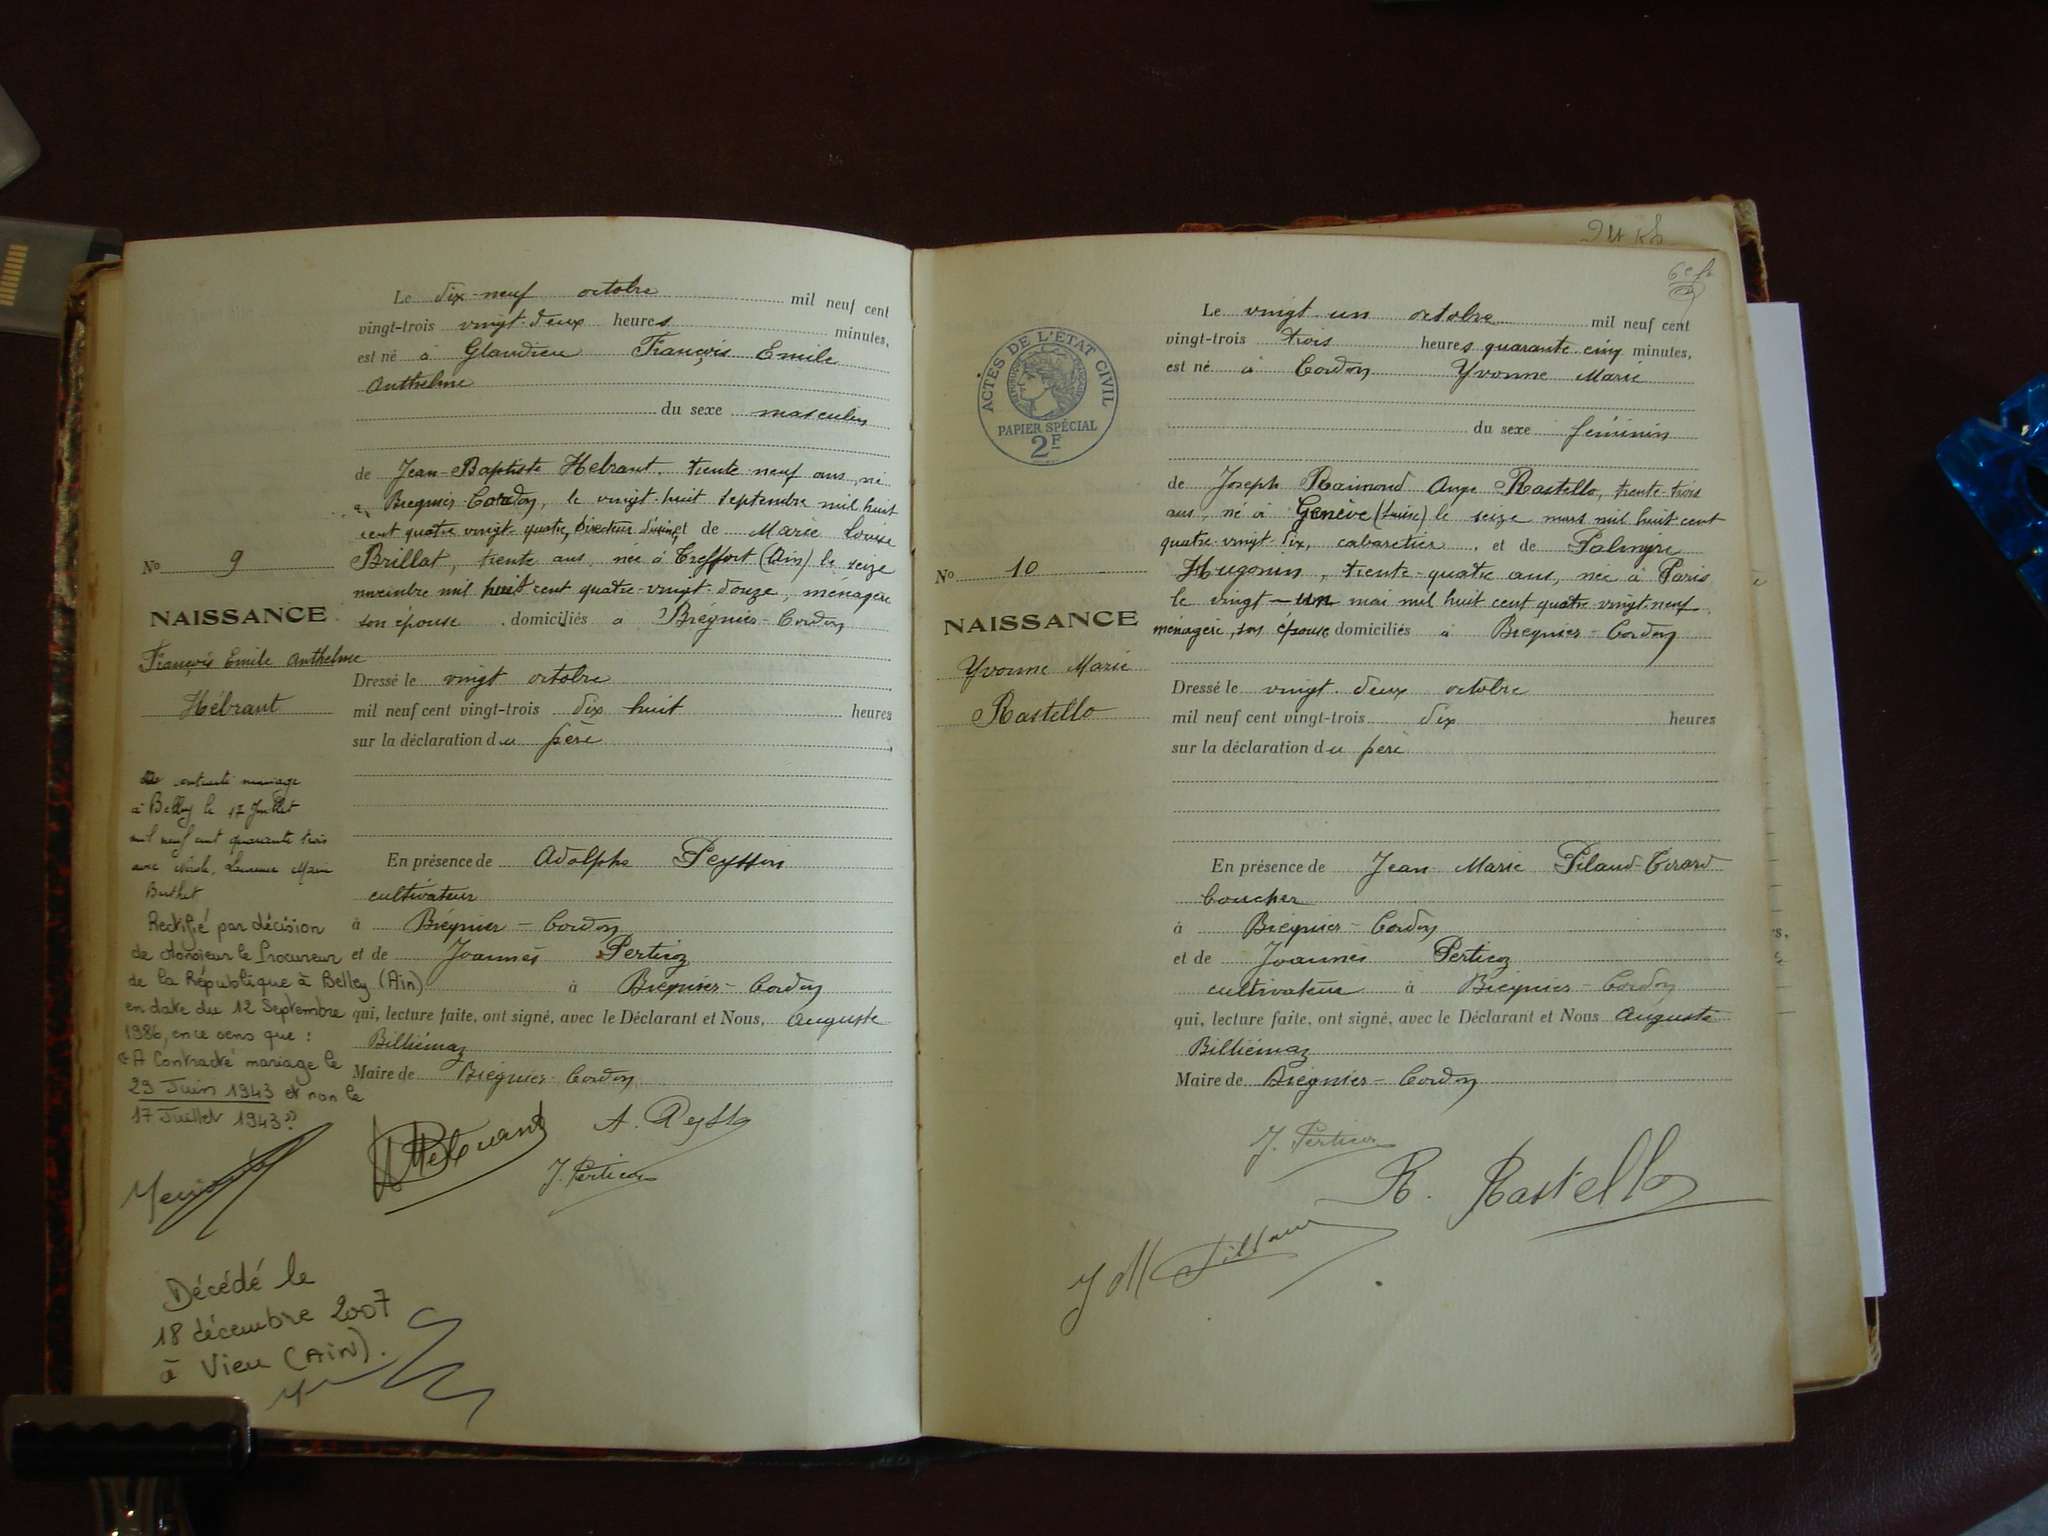 Le dix-neuf octobre mil neuf cent
vingt-trois vingt-deux heures minutes,
est né à Glandieu François Emile
Anthelme
du sexe masculin
de Jean-Baptiste Hébrant, trente neuf ans, né
à Brégnier-Cordon, le vingt-huit septembre mil huit
cent quatre vingt quatre, Directeur d'usine, et de Marie Louise
Brillat, trente ans, née à Treffort (Ain) le seize
novembre mil huit cent quatre-vingt-douze, ménagère
son épouse domiciliés à Brégnier-Cordon
No 9
NAISSANCE
François Emile Anthelme
Hébrant
Dressé le vingt octobre
mil neuf cent vingt-trois dix huit heures
sur la déclaration du père
contracté mariage
à Belley le 17 Juillet
mil neuf cent quarante trois
avec Laurence Marie
Buthet
Rectifié par décision
de Monsieur le Procureur
de la République à Belley (Ain)
en date du 12 Septembre
1986, en ce sens que :
"A Contracté mariage le
29 Juin 1943 et non le
17 Juillet 1943"
En présence de Adolphe Peysson
cultivateur
à Brégnier-Cordon
et de Joannès Perticoz
à Brégnier-Cordon
qui, lecture faite, ont signé, avec le Déclarant et Nous, Auguste
Billiémaz
Maire de Brégnier-Cordon
Hébrant
A. Peysson
J. Perticoz
Décédé le
18 décembre 2007
à Vieu (AIN).
6e f.
ACTES DE L'ETAT CIVIL
PAPIER SPÉCIAL
2F
Le vingt un octobre mil neuf cent
vingt-trois trois heures quarante-cinq minutes,
est né à Cordon Yvonne Marie
du sexe féminin
de Joseph Raimond Ange Rastello, trente-trois
ans, né à Genève (Suisse) le seize mars mil huit cent
quatre-vingt-dix, cabaretier, et de Palmyre
Hugonin, trente-quatre ans, née à Paris
le vingt-un mai mil huit cent quatre-vingt-neuf
ménagère, son épouse domiciliés à Brégnier-Cordon
No 10
NAISSANCE
Yvonne Marie
Rastello
Dressé le vingt-deux octobre
mil neuf cent vingt-trois dix heures
sur la déclaration du père
En présence de Jean Marie Pilaud-Tirard
boucher
à Brégnier-Cordon
et de Joannès Perticoz
cultivateur à Brégnier-Cordon
qui, lecture faite, ont signé, avec le Déclarant et Nous Auguste
Billiémaz
Maire de Brégnier-Cordon
J. Perticoz
R. Rastello